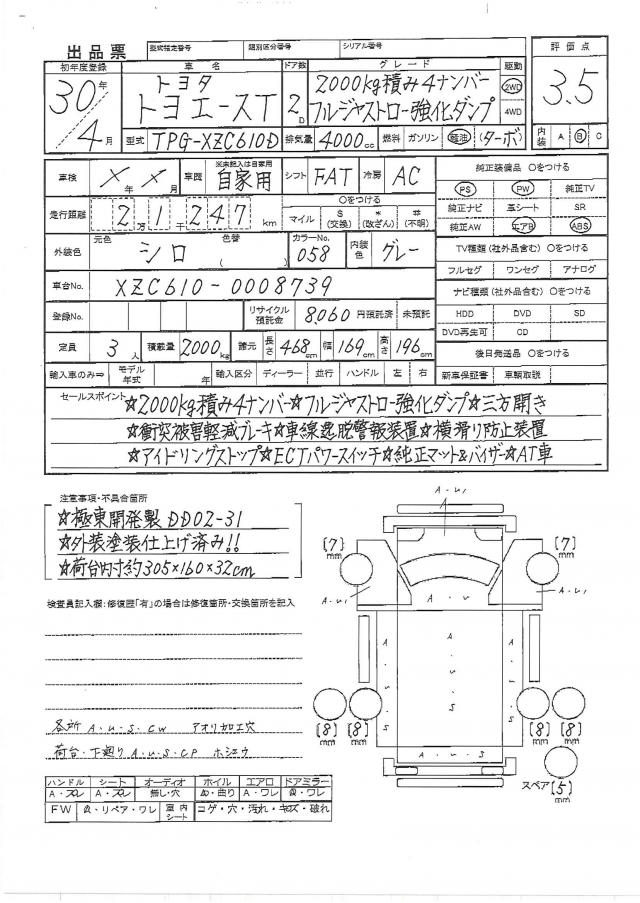 出品票 型式指定番号 類別区分番号 シリアル番号
初年度登録 車名 ドア数 グレード 駆動 評価点
30年 トヨタ 2000kg積み4ナンバー 2WD 3.5
トヨエースT 2D フルジャストロー強化ダンプ 4WD
4月 型式 TPG-XZC610D 排気量 4000cc 燃料 ガソリン 軽油 (ターボ) 内装 A B C
車検 X年X月 車歴 ※未記入は自家用 自家用 シフト FAT 冷房 AC 純正装備品 ○をつける
PS PW 純正TV
走行距離 2万1千247km ○をつける マイル $(交換) *(改ざん) #(不明) 純正ナビ 革シート SR
純正AW エアB ABS
外装色 元色 シロ 色替 ( ) カラーNo. 058 内装色 グレー TV種類(社外品含む) ○をつける
フルセグ ワンセグ アナログ
車台No. XZC610-0008739 ナビ種類(社外品含む) ○をつける
登録No. リサイクル預託金 8,060円預託済 未預託 HDD DVD SD
DVD再生可 CD
定員 3人 積載量 2000kg 諸元 長さ 468cm 幅 169cm 高さ 196cm 後日発送品 ○をつける
輸入車のみ⇒ モデル年式 年 輸入区分 ディーラー 並行 ハンドル 左 右 新車保証書 車輌取説
セールスポイント ☆2000kg積み4ナンバー☆フルジャストロー強化ダンプ☆三方開き
☆衝突被害軽減ブレーキ☆車線逸脱警報装置☆横滑り防止装置
☆アイドリングストップ☆ECTパワースイッチ☆純正マット&バイザー☆AT車
注意事項・不具合箇所
☆極東開発製DD02-31
☆外装塗装仕上げ済み!!
☆荷台内寸約305×160×32cm
検査員記入欄:修復歴「有」の場合は修復箇所・交換箇所を記入
各所 A.U.S.CW アオリ加工穴
荷台・下廻り A.U.S.CP ホシュウ
ハンドル シート オーディオ ホイル エアロ ドアミラー
A・スレ A・スレ 無し・穴 A・曲り A・ワレ A・ワレ
FW A・リペア・ワレ 室内シート コゲ・穴・汚れ・キズ・破れ
A.U1
[7]mm [7]mm
A.U1 A.U A.U1
A.U.S A.U.S A.U.S
[8]mm [8]mm [8]mm [8]mm
A.U.S
スペア [5]mm